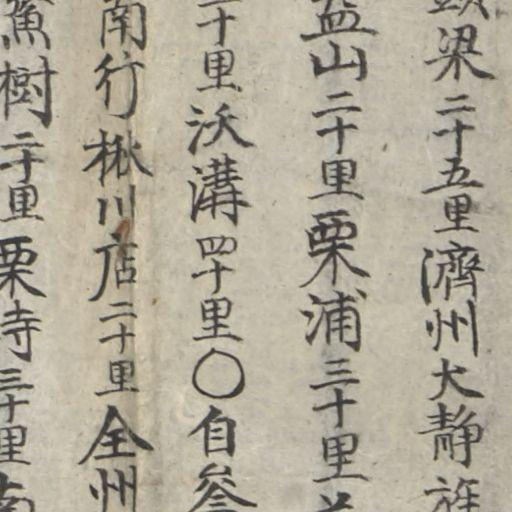 梁二十五里濟州大静旌
益山二十里栗浦三十里
二十里沃溝四十里○自叅
南行楸川店二十里全州
樹二十里栗寺三十里南